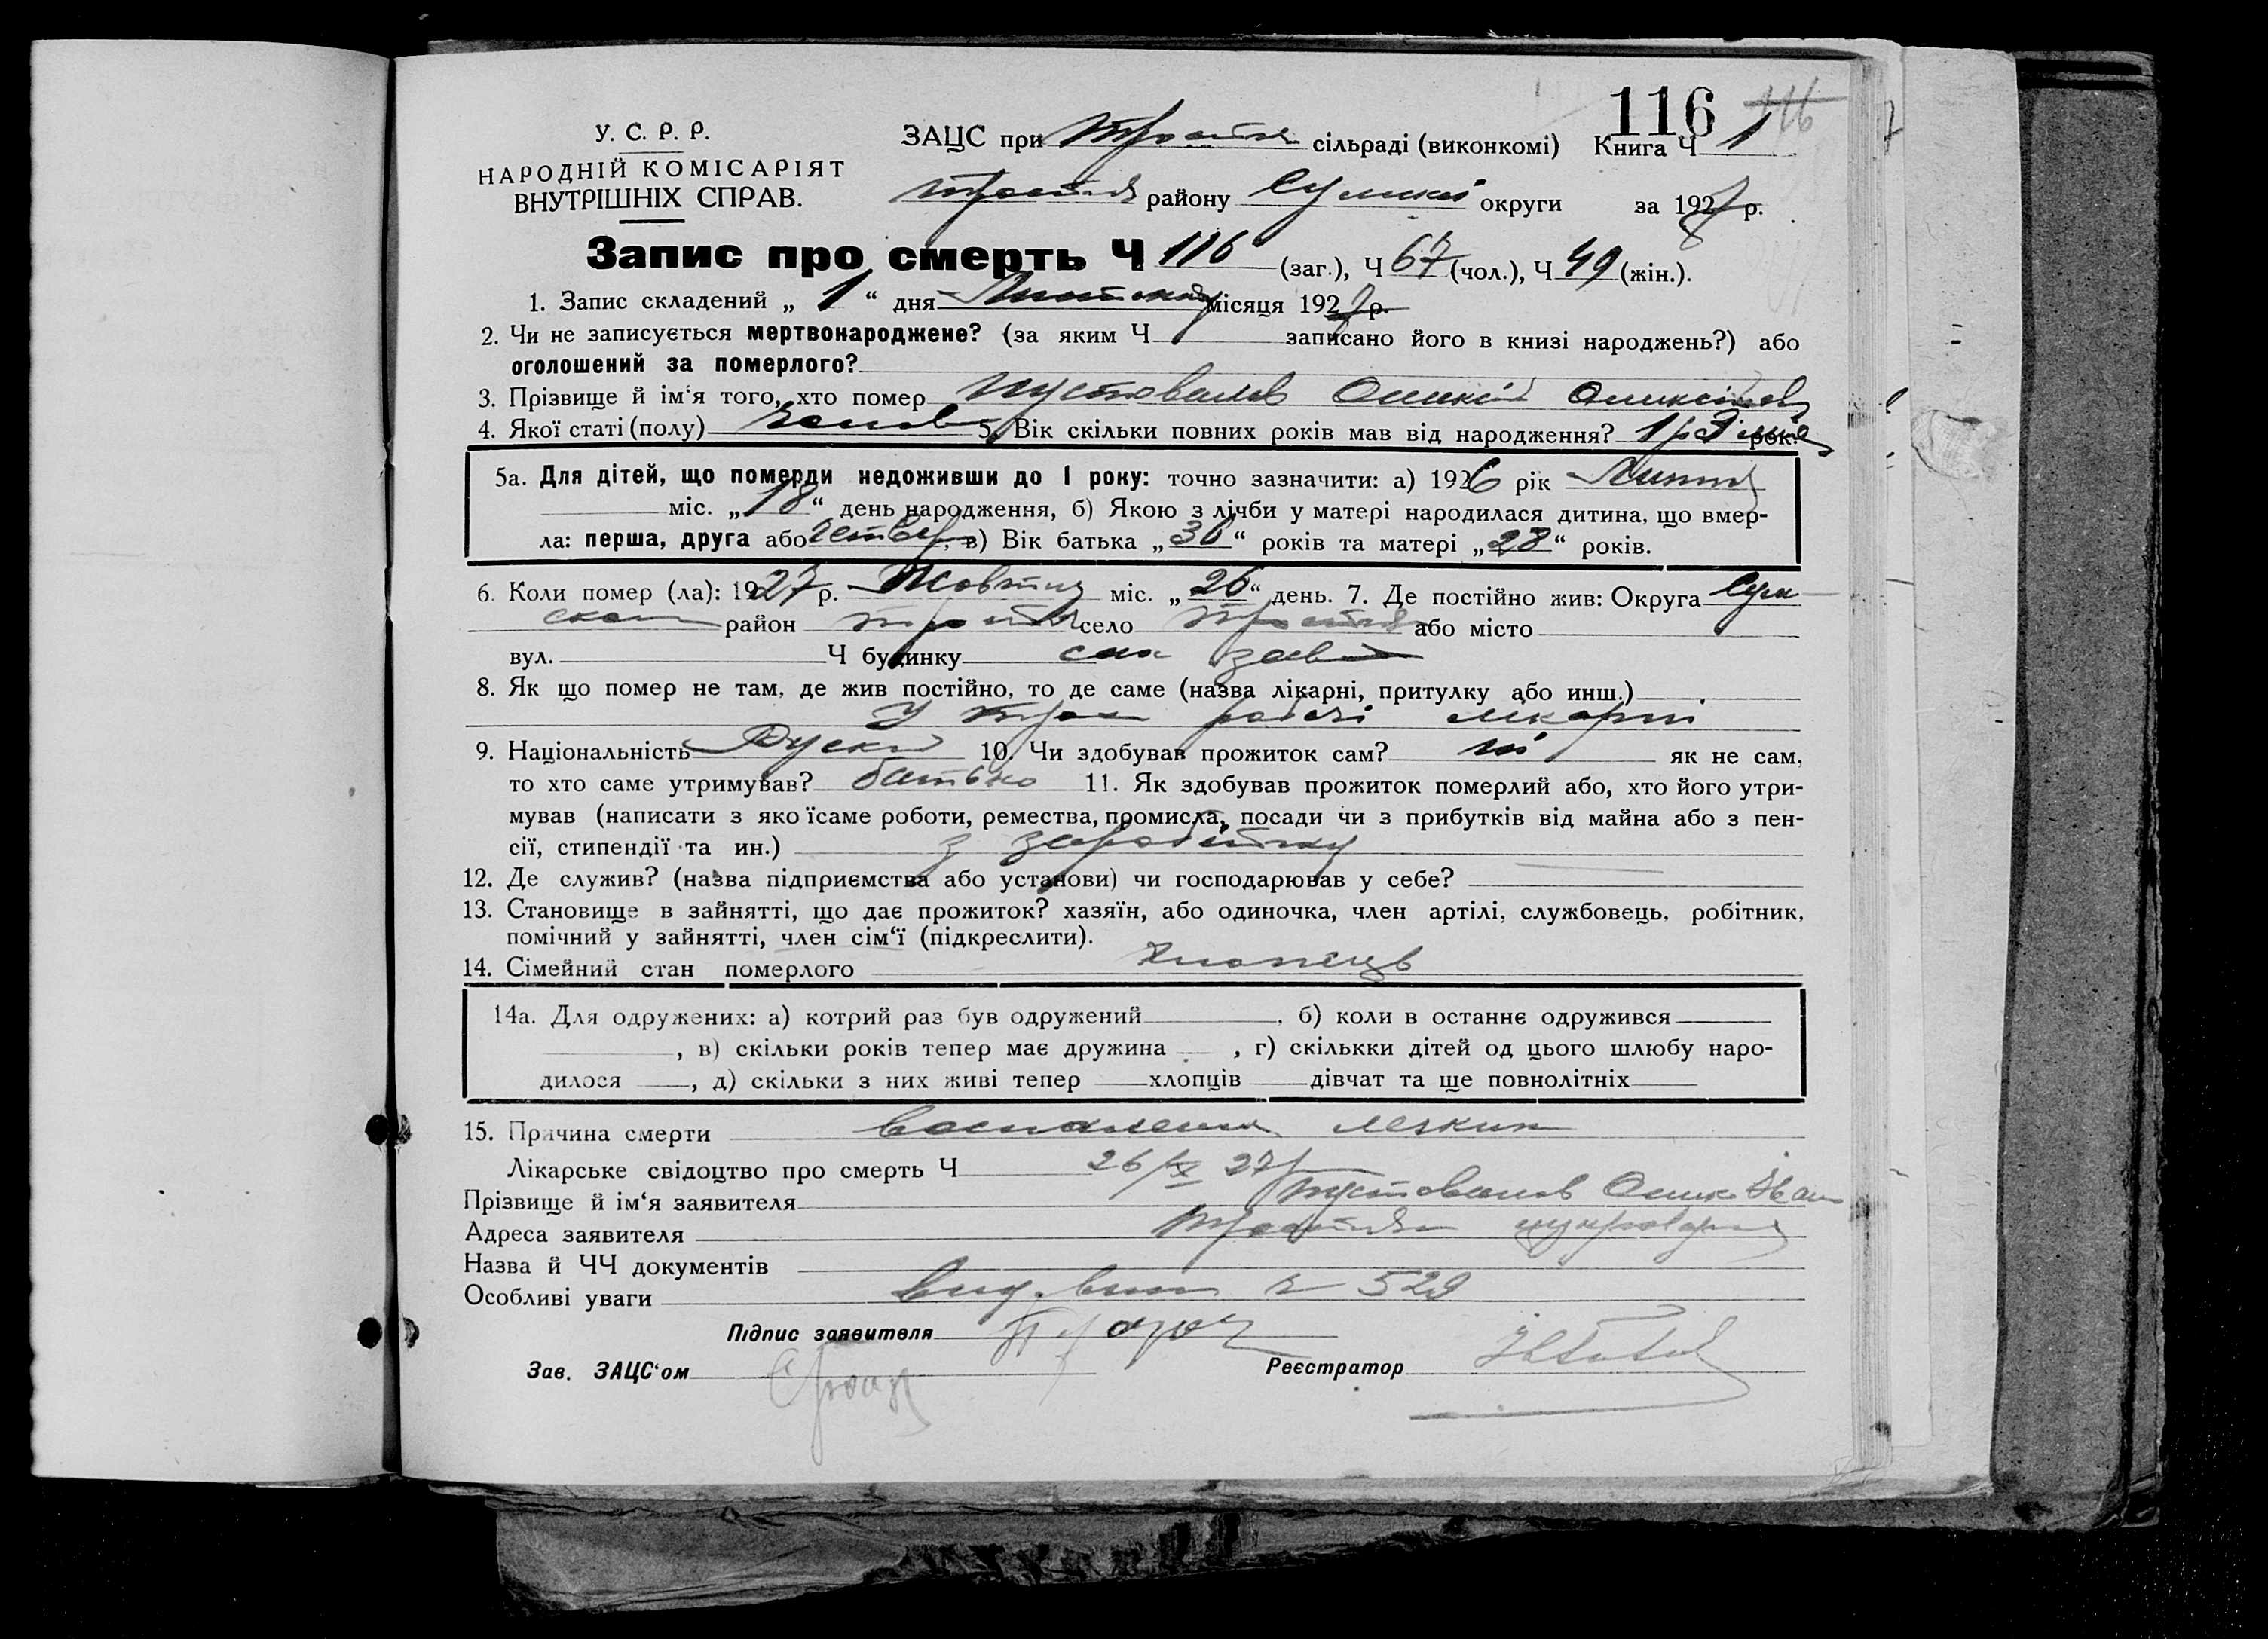 116 116
У. С. Р. Р.
НАРОДНІЙ КОМІСАРІЯТ
ВНУТРІШНІХ СПРАВ.
ЗАЦС при Тростян сільраді (виконкомі) Книга Ч 1
району Сумської округи за 1927 р.
Запис про смерть Ч 116 (заг.), Ч 67 (чол.), Ч 49 (жін.).
1. Запис складений „ 1 “ дня Листопаду місяця 1927 р.
2. Чи не записується мертвонароджене? (за яким Ч записано його в книзі народжень?) або
оголошений за померлого?
3. Прізвище й ім‘я того, хто помер Пустовалов Олексій Олексійов
4. Якої статі (полу) чолов 5. Вік скільки повних років мав від народження? 1 р 3 міс рок.
5а. Для дітей, що померли недоживши до 1 року: точно зазначити: а) 1926 рік Липня
міс. „ 18 “ день народження, б) Якою з лічби у матері народилася дитина, що вмер-
ла: перша, друга або четвер, в) Вік батька „ 36 “ років та матері „ 28 “ років.
6. Коли помер (ла): 1927 р. Жовтня міс. „ 26 “ день. 7. Де постійно жив: Округа Сум
ська район Тростян село Тростян або місто
вул. Ч будинку сах завод
8. Як що помер не там, де жив постійно, то де саме (назва лікарні, притулку або инш.)
У Трост робочі лікарні
9. Національність Руский 10. Чи здобував прожиток сам? ні як не сам,
то хто саме утримував? батько 11. Як здобував прожиток померлий або, хто його утри-
мував (написати з яко їсаме роботи, ремества, промисла, посади чи з прибутків від майна або з пен-
сії, стипендії та ин.) з заробітку
12. Де служив? (назва підприємства або установи) чи господарював у себе?
13. Становище в зайнятті, що дає прожиток? хазяїн, або одиночка, член артілі, службовець, робітник,
помічний у зайнятті, член сім‘ї (підкреслити).
14. Сімейний стан померлого хлопець
14а. Для одружених: а) котрий раз був одружений , б) коли в останнє одружився
, в) скільки років тепер має дружина , г) скількки дітей од цього шлюбу наро-
дилося , д) скільки з них живі тепер хлопців дівчат та ще повнолітніх
15. Причина смерти воспаление легких
Лікарське свідоцтво про смерть Ч 26/X 27 р
Прізвище й ім‘я заявителя Пустовалов Олекс Іван
Адреса заявителя Тростян цукроварня
Назва й ЧЧ документів
Особливі уваги вид. вип ч 529
Підпис заявителя
Зав. ЗАЦС‘ом Реєстратор